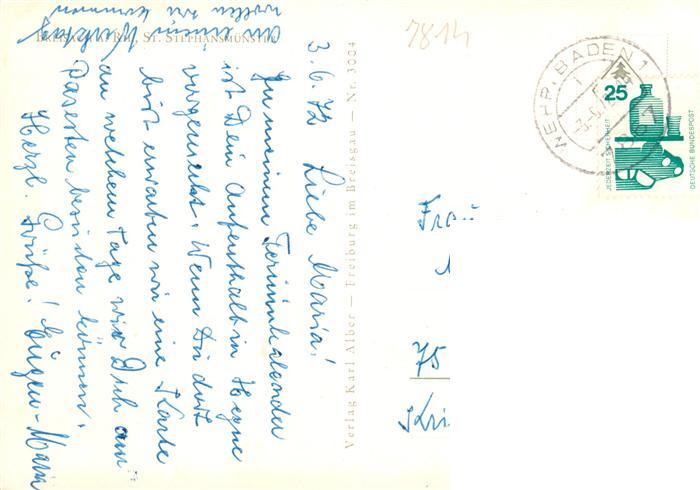 BREISACH a. Rh., ST. STEPHANSMÜNSTER
3.6.72 Liebe Maria!
In meinem Terminkalender
ist Dein Aufenthalt in Hegne
vorgemerkt. Wenn Du dort
bist erwarten wir eine Karte
an welchem Tage wir Dich am
besten besuchen können.
Herzl. Grüße! Eugen-Maria
an einem Werktag
wollen wir kommen
Verlag Karl Alber — Freiburg im Breisgau — Nr. 3004
7814
WEHR, BADEN 1
25
JEDERZEIT SICHERHEIT
DEUTSCHE BUNDESPOST
Frau
75
Kri